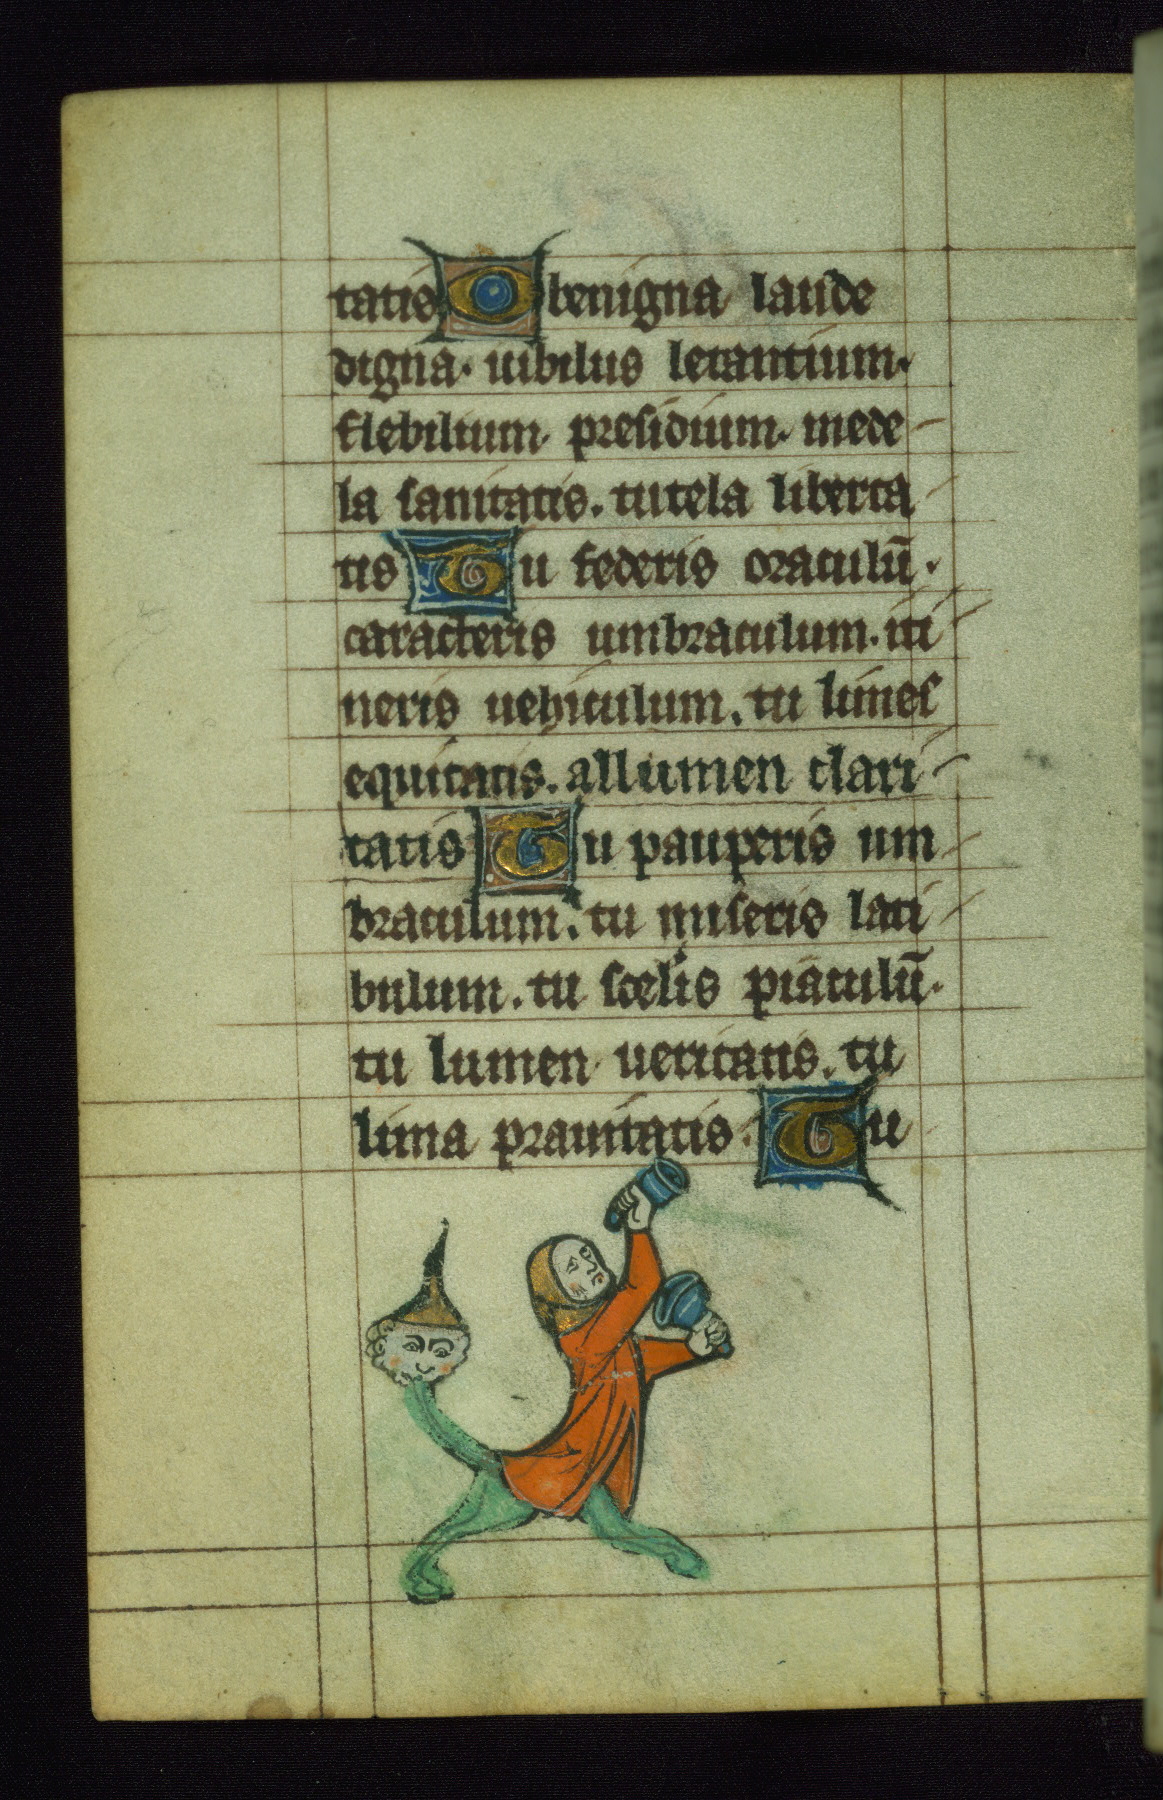 tatis O benigna laude
digna. iubilus letantium.
flebilium. presidium. mede
la sanitatis. tutela liberta
tis Tu federis oraculū.
caracteris umbraculum. iti
neris uehiculum. tu limes
equitatis. allumen clari
tatis Tu pauperis um
braculum. tu miseris lati
bulum. tu scel'is piaculū.
tu lumen ueritatis. tu
lima prauitatis. Tu